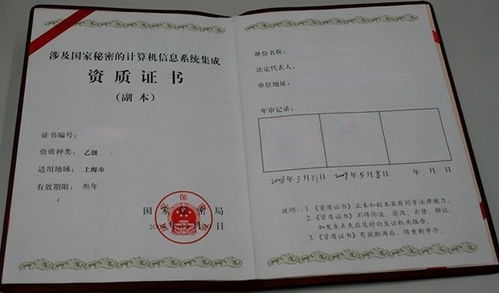 涉及国家秘密的计算机信息系统集成
资质证书
(副本)
证书编号:
资质种类: 乙级
适用地域: 上海市
有效期限: 叁年
国家保密局
单位名称:
法定代表人:
单位地址:
年审记录:
2008年3月31日 2009年5月8日
说明: 1.《资质证书》正本和副本具有同等法律效力。
2.《资质证书》不得伪造、涂改、出借、转让,
如发生遗失应及时向发证机关报告。
3.《资质证书》有效期满后, 须重新申办。